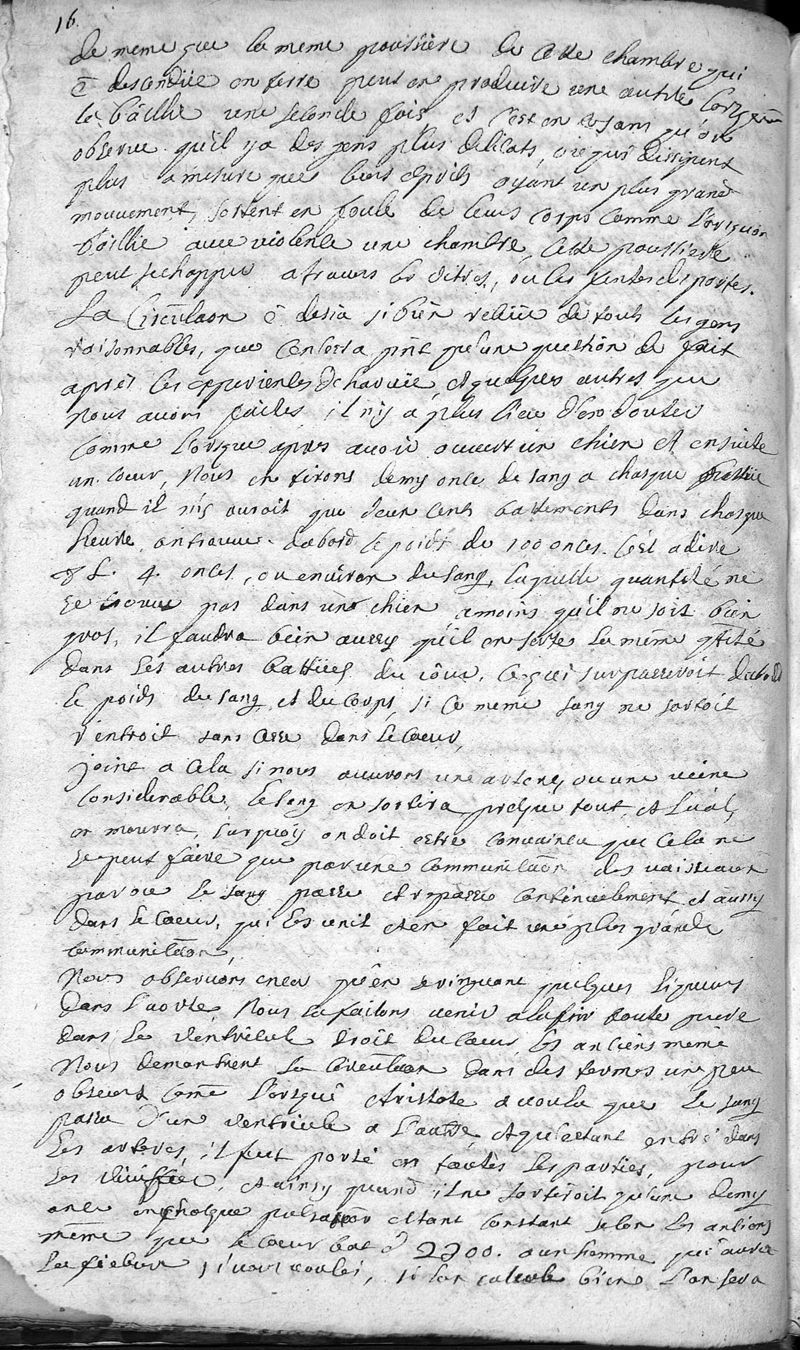 16.
de meme que la meme poussiere de cette chambre qui
ē descendüe en terre peut en produire une autre lors
le baille une seconde fois et c'est en ce sens qu'on
observe qu'il y a des gens plus delicats, ou qui dissipent
plus a mesure que leurs esprits ayant un plus grand
mouvement, sortent en foule de leurs corps comme lorsquon
baille avec violence une chambre, cette poussiere
peut sechapper a travers les vitres, ou les fentes des portes.
La Circulaōn ē desia si bien receüe de touts les gens
raisonnables, que ce nestera pñt qu'une question de fait
apres les experiences d'havuëe, et quelques autres que
nous avons faites, il n'y a plus lieu d'en douter
comme lorsque apres avoir ouvert un chien et ensuite
un coeur, nous en tirons demy once de sang a chasque
quand il n'y auroit que deux cents battements dans chasque
heure, on trouve dabord le poids de 100 onces. C'est a dire
8 L. 4. onces, ou environ du sang, laquelle quantité ne
se trouve pas dans une chien amoins qu'il ne soit bien
gros, il faudra bein aussy qu'il en sorte la même qtité
dans les autres batties du coeur, ce qui surpasseroit dabord
le poids du sang, et du corps, si ce meme sang ne sortoit
r'entroit sans cesse dans le coeur,
joint a cela si nous ouvrons une artere, ou une veine
considerable, le sang en sortira presque tout, et l'ãal,
en mourra, surquoy on doit estre convaincu que cela ne
se peut faire que par une communicaōn des vaisseaux
par ou le sang passe et repasse continuelement et aussy
dans le coeur, qui les unit et en fait une plus grande
communicaōn,
Nous observons encor qu'en seringuant quelques liqueurs
dans l'aorte nous la faisons venir a la fin toute pure
dans le ventricule droit du coeur, les anciens même
Nous demontrent la circulaōn dans des termes une peu
obscurs come lorsque Aristote a voulu que le sang
passa d'un ventricule a l'autre, et qu'estant entré dans
les arteres, il fut porté en toutes les parties, pour
les vivifier, et ainsy quand il ne sortiroit qu'une demy
once en chasque pulsaōn estant constant selon les anciens
même que le coeur bat 2700. a un homme qui aura
la fiebure si vous voulés, si l'on calcule bien l'on sera